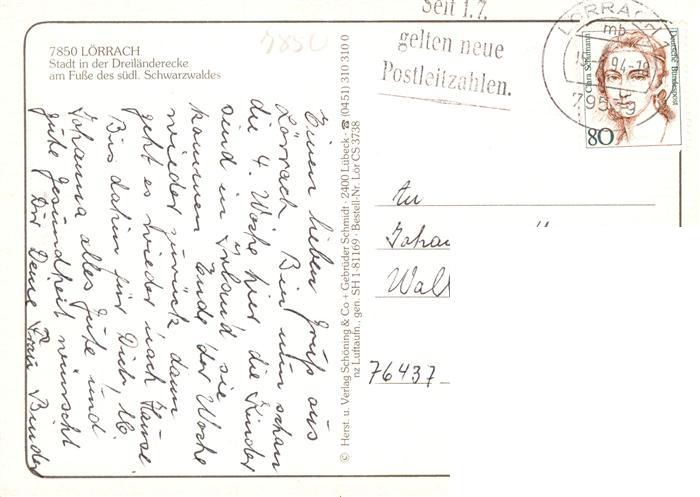 7850 LÖRRACH
Stadt in der Dreiländerecke
am Fuße des südl. Schwarzwaldes
7850
Seit 1.7.
gelten neue
Postleitzahlen.
LÖRRACH 1
mb
94-19
795
Clara Schumann
Deutsche Bundespost
80
Einen lieben Gruß aus
Lörrach Bin nun schon
die 4. Woche hier die Kinder
sind in Irland sie
kommen Ende der Woche
wieder zurück dann
geht es wieder nach Hause.
Bis dahin für Dich, lb.
Johanna alles Gute und
gute Gesundheit wünscht
Dir Deine Frau Binder
© Herst. u. Verlag Schöning & Co + Gebrüder Schmidt · 2400 Lübeck · ☎ (0451) 310 310 0
nz Luftaufn., gen. SH 1-81169 · Bestell-Nr. Lör CS 3738
An
Johan
Wall
76437